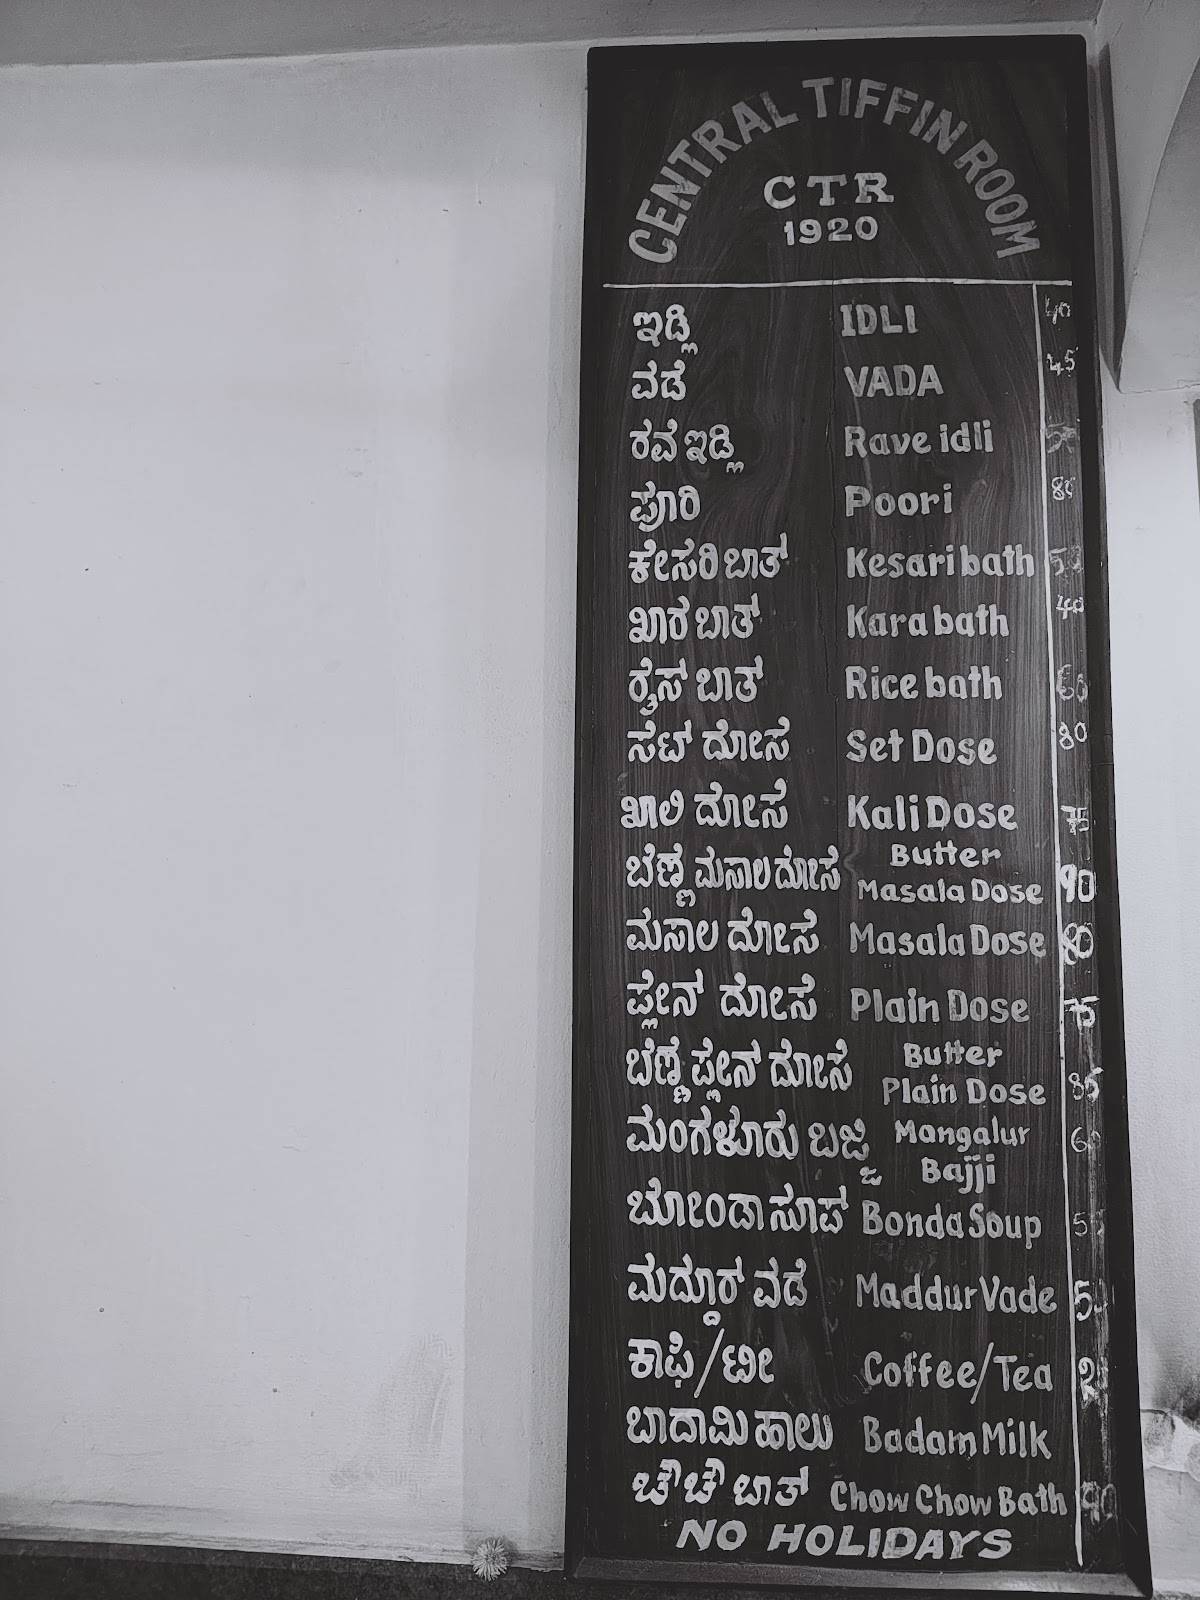 CENTRAL TIFFIN ROOM
CTR
1920
ಇಡ್ಲಿ IDLI 40
ವಡೆ VADA 45
ರವೆ ಇಡ್ಲಿ Rave idli
ಪೂರಿ Poori 80
ಕೇಸರಿ ಬಾತ್ Kesari bath
ಖಾರ ಬಾತ್ Kara bath 40
ರೈಸ್ ಬಾತ್ Rice bath
ಸೆಟ್ ದೋಸೆ Set Dose 80
ಖಾಲಿ ದೋಸೆ Kali Dose 75
ಬೆಣ್ಣೆ ಮಸಾಲ ದೋಸೆ Butter Masala Dose 90
ಮಸಾಲ ದೋಸೆ Masala Dose 80
ಪ್ಲೇನ್ ದೋಸೆ Plain Dose 75
ಬೆಣ್ಣೆ ಪ್ಲೇನ್ ದೋಸೆ Butter Plain Dose 85
ಮಂಗಳೂರು ಬಜ್ಜಿ Mangalur Bajji
ಬೋಂಡಾ ಸೂಪ್ Bonda Soup
ಮದ್ದೂರ್ ವಡೆ Maddur Vade
ಕಾಫಿ/ಟೀ Coffee/Tea
ಬಾದಾಮಿ ಹಾಲು Badam Milk
ಚೌಚೌ ಬಾತ್ Chow Chow Bath 90
NO HOLIDAYS